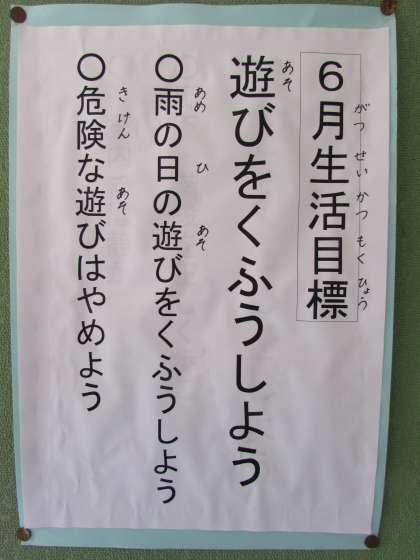 6月生活目標
がつ せい かつ もく ひょう
遊びをくふうしよう
あそ
〇雨の日の遊びをくふうしよう
あめ ひ あそ
〇危険な遊びはやめよう
き けん あそ